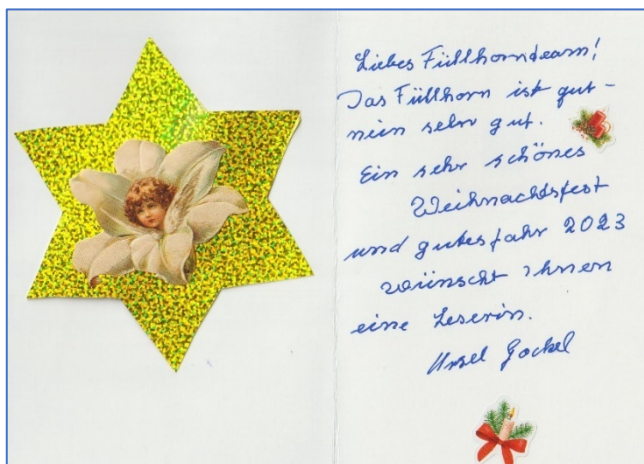 Liebes Füllhornteam!
Das Füllhorn ist gut -
nein sehr gut.
Ein sehr schönes
Weihnachtsfest
und gutes Jahr 2023
wünscht Ihnen
eine Leserin.
Ursel Gockel